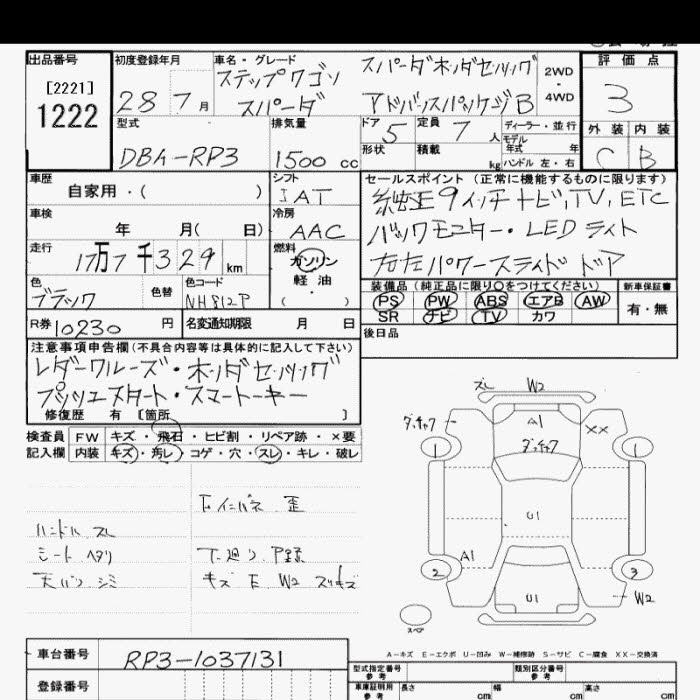 出品番号
[2221]
1222
初度登録年月
28 7月
車名・グレード
ステップワゴン スパーダホンダセンシング
スパーダ アドバンスパッケージB
2WD・4WD
評価点
3
外装 内装
C B
型式
DBA-RP3
排気量
1500 cc
ドア 5
定員 7人
ディーラー・並行
モデル年式 年
形状
積載 kg
ハンドル 左・右
車歴
自家用・( )
シフト
IAT
車検
年 月( 日)
冷房
AAC
走行
17万7千329km
燃料
ガソリン
軽油
( ・ )
色
ブラック
色替
色コード
NH812P
R券 10230 円
名変通知期限 月 日
セールスポイント (正常に機能するものに限ります)
純正9インチナビ,TV,ETC
バックモニター・LEDライト
左右パワースライドドア
装備品(純正品に限り○をつけてください)
PS PW ABS エアB AW
SR ナビ TV カワ
新車保証書
有・無
後日品
注意事項申告欄(不具合内容等は具体的に記入して下さい)
レダークルーズ・ホンダセンシング
プッシュスタート・スマートキー
修復歴 有 [箇所 ]
検査員記入欄
FW キズ・飛石・ヒビ割・リペア跡・×要
内装 キズ・汚レ・コゲ・穴・スレ・キレ・破レ
F インパネ 歪
ハンドル スレ
シート ヘタリ
天バン シミ
下廻り P錆
キズ E W2 スリキズ
スレ W2
ダッチャク A1 XX
ダッチャク
1 1
U1
A1
2 3
U1 W2
スペア
A-キズ E-エクボ U-凹み W-補修跡 S-サビ C-腐食 XX-交換済
車台番号
RP3-1037131
登録番号
型式指定番号 参考
類別区分番号 参考
車庫証明用 参考
長さ cm 幅 cm 高さ cm